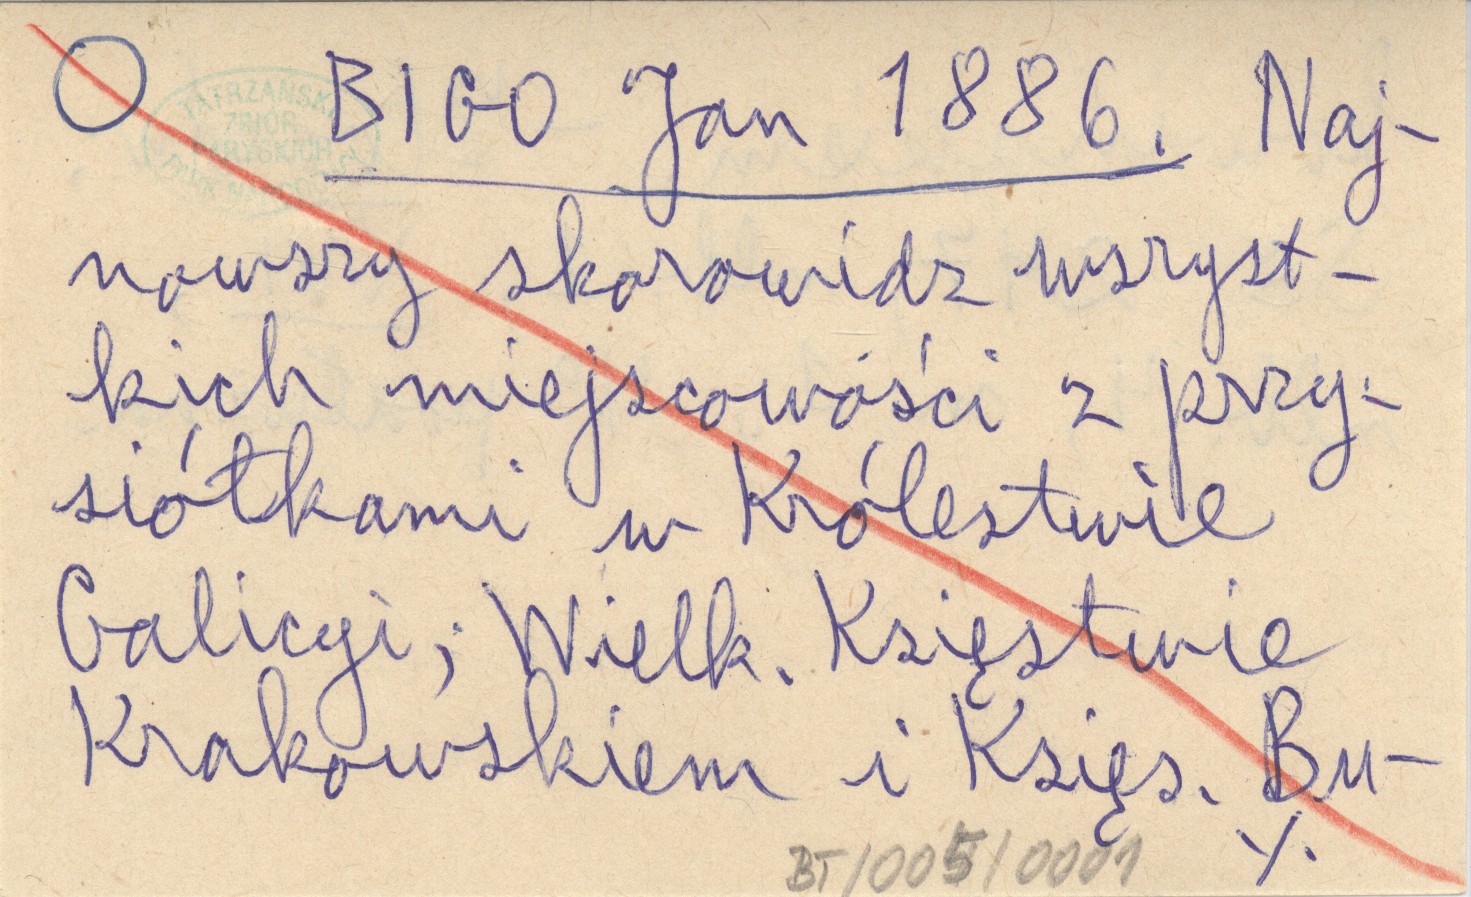 O BIGO Jan 1886. Naj-
nowszy skorowidz wszyst-
kich miejscowości z przy-
siółkami w Królestwie
Galicyi, Wielk. Księstwie
Krakowskiem i Księs. Bu-
TATRZAŃSKI
ZBIÓR
PARYSKICH
BT/005/0001